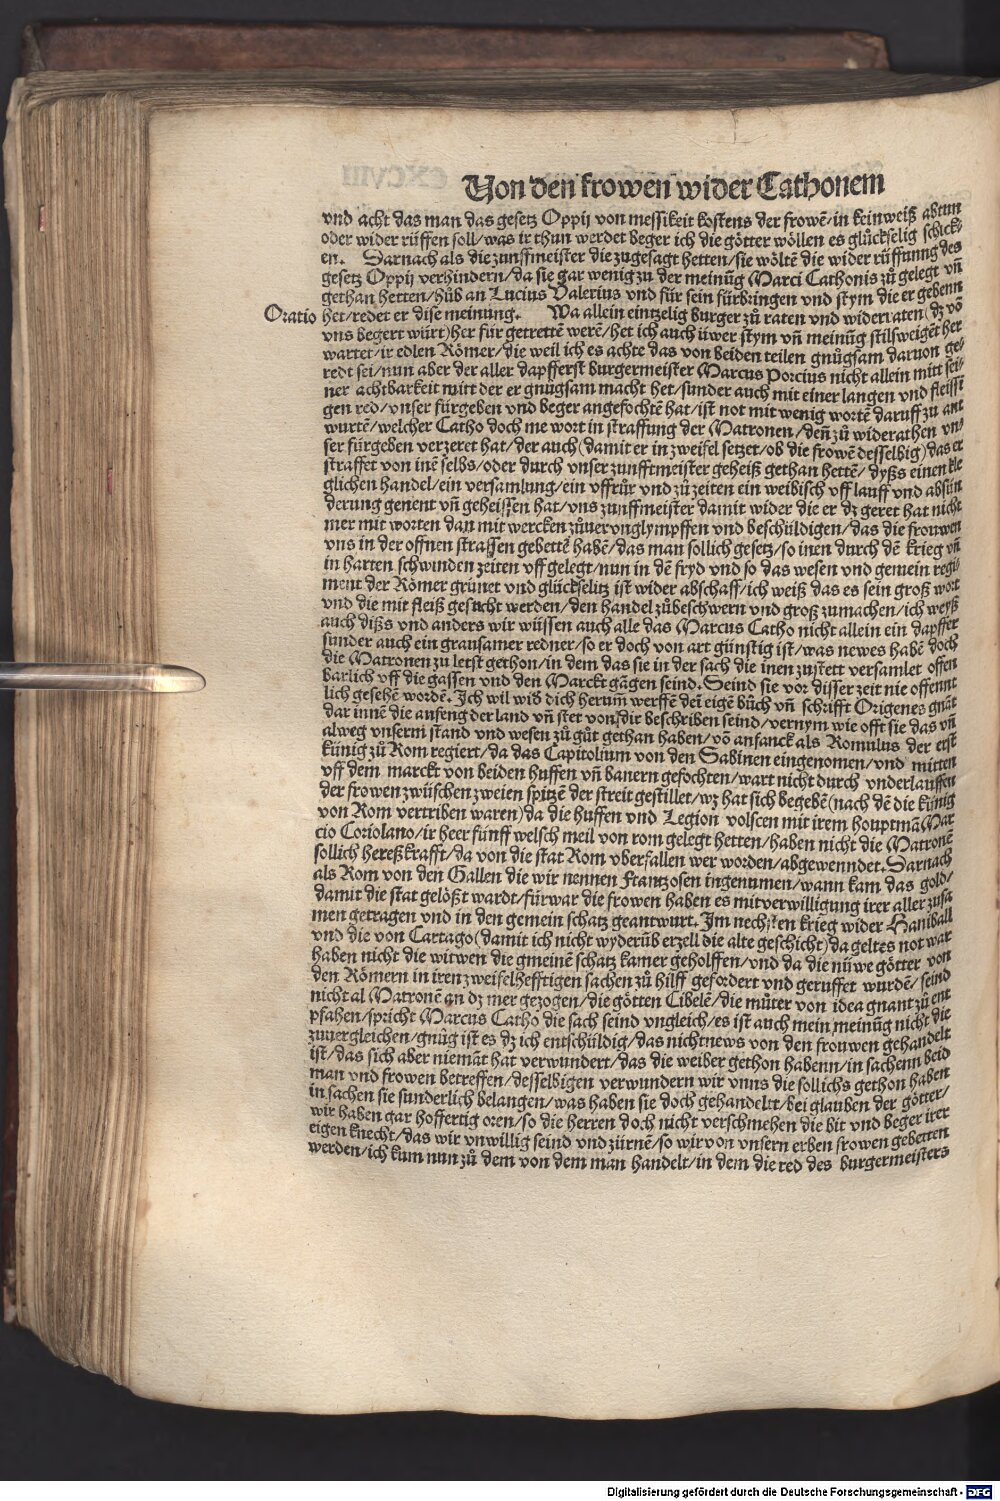 Von den frowen wider Cathonem
vnd acht das man das gesetz Oppij von messikeit kostens der frowē/in keinweiß abtun
oder wider rüffen soll/was ir thun werdet beger ich die götter wöllen es glückselig schick/
en. Darnach als die zunffmeister die zugesagt hetten/sie wöltē die wider rüffunng des
gesetz Oppij verhindern/da sie gar wenig zu der meinūg Marci Cathonis zů gelegt vñ
gethan hetten/hůb an Lucius Valerius vnd für sein fürbringen vnd stym die er gebenn
Oratio het/redet er dise meinung. Wa allein eintzelig burger zů raten vnd widerraten (dz vō
vns begert würt) her für getrettē werē/het ich auch üwer stym vñ meinūg stilsweiget her
wartet/ir edlen Römer/die weil ich es achte das von beiden teilen gnůgsam daruon ge/
redt sei/nun aber der aller dapfferst burgermeister Marcus Porcius nicht allein mitt sei/
ner achtbarkeit mitt der er gnůgsam macht het/sunder auch mit einer langen vnd fleissi
gen red/vnser fürgeben vnd beger angefochtē hat/ist not mit wenig wortē daruff zu ant
wurtē/welcher Catho doch me wort in straffung der Matronen/deñ zů widerathen vn/
ser fürgeben verzeret hat/der auch (damit er in zweifel setzet/ob die frowē desselbig) das er
straffet von inē selbs/oder durch vnser zunfftmeister geheiß gethan hettē/dyßs einen kle
glichen handel/ein versamlung/ein vffrůr vnd zů zeiten ein weibisch vff lauff vnd absün
derung genent vñ geheissen hat/vns zunffmeister damit wider die er dz geret hat nicht
mer mit worten dan mit wercken zůuervnglympffen vnd beschüldigen/das die frouwen
vns in der offnen strassen gebettē habē/das man sollich gesetz/so inen durch dē krieg vñ
in harten schwinden zeiten vff gelegt/nun in dē fryd vnd so das wesen vnd gemein regi/
ment der Römer grünet vnd glückselitz ist wider abschaff/ich weiß das es sein groß wort
vnd die mit fleiß gesucht werden/den handel zůbeschwern vnd groß zumachen/ich weyß
auch dißs vnd anders wir wüssen auch alle das Marcus Catho nicht allein ein dapffer
sunder auch ein grausamer redner/so er doch von art günstig ist/was newes habē doch
die Matronen zu letst gethon/in dem das sie in der sach die inen zustett versamlet offen
barlich vff die gassen vnd den Marckt gāgen seind. Seind sie vor disser zeit nie offennt
lich gesehē wordē. Ich wil wid dich herum̄ werffē deī eigē bůch vñ schrifft Origenes gnāt
dar innē die anfeng der land vñ stet von dir beschriben seind/vernym wie offt sie das vñ
alweg vnserm stand vnd wesen zů gůt gethan haben/vō anfanck als Romulus der erst
künig zů Rom regiert/da das Capitolium von den Sabinen eingenomen/vnd mitten
vff dem marckt von beiden huffen vñ banern gefochten/wart nicht durch vnderlauffen
der frowen zwüschen zweien spitzē der streit gestillet/wz hat sich begebē (nach dē die künig
von Rom vertriben waren) da die huffen vnd Legion volscen mit irem houptmā Mar
cio Coriolano/ir heer fünff welsch meil von rom gelegt hetten/haben nicht die Matronē
sollich hereßkrafft/da von die stat Rom vberfallen wer worden/abgewenndet. Darnach
als Rom von den Gallen die wir nennen Frantzosen ingenumen/wann kam das gold/
damit die stat gelößt wardt/fürwar die frowen haben es mitverwilligung irer aller zusa
men getragen vnd in den gemein schatz geantwurt. Im nechsten krieg wider Haniball
vnd die von Cartago (damit ich nicht wyderüb erzell die alte geschicht) da geltes not war
haben nicht die witwen die gmeinē schatz kamer geholffen/vnd da die nüwe götter von
den Römern in iren zweifelhefftigen sachen zů hilff gefordert vnd geruffet wurdē/seind
nicht al Matronē an dz mer gezogen/die götten Cibelē/die můter von idea gnant zů ent
pfahen/spricht Marcus Catho die sach seind vngleich/es ist auch mein meinūg nicht die
zuuergleichen/gnůg ist es dz ich entschüldig/das nichtnews von den frouwen gehandelt
ist/das sich aber niemāt hat verwundert/das die weiber gethon habenn/in sachenn beid
man vnd frowen betreffen/desselbigen verwundern wir vnns die sollichs gethon haben
in sachen sie sunderlich belangen/was haben sie doch gehandeltt/bei glauben der götter/
wir haben gar hoffertig oren/so die herren doch nicht verschmehen die bit vnd beger irer
eigen knecht/das wir vnwillig seind vnd zürnē/so wir von vnsern erben frowen gebetten
werden/ich kum nun zů dem von dem man handelt/in dem die red des burgermeisters
Digitalisierung gefördert durch die Deutsche Forschungsgemeinschaft - DFG